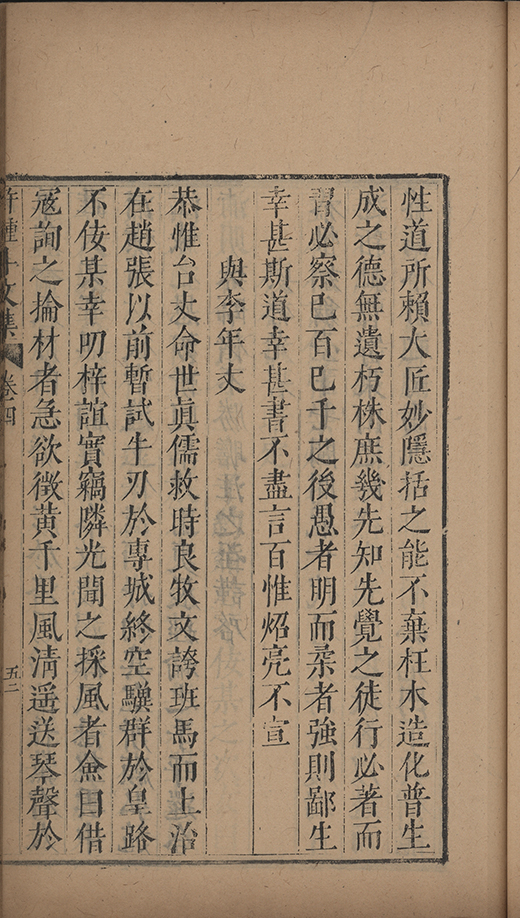 性道所賴大匠妙隱括之能不棄枉木造化普生
成之德無遺朽株庶幾先知先覺之徒行必著而
習必察已百已千之後愚者明而柔者強則鄙生
幸甚斯道幸甚書不盡言百惟炤亮不宣
與李年丈
恭惟台丈命世眞儒救時良牧文誇班馬而上治
在趙張以前暫試牛刃於專城終空驥群於皇路
不佞某幸叨梓誼實竊隣光聞之採風者僉曰借
寇詢之掄材者急欲徵黄千里風清遥送琴聲於
卷四
五二